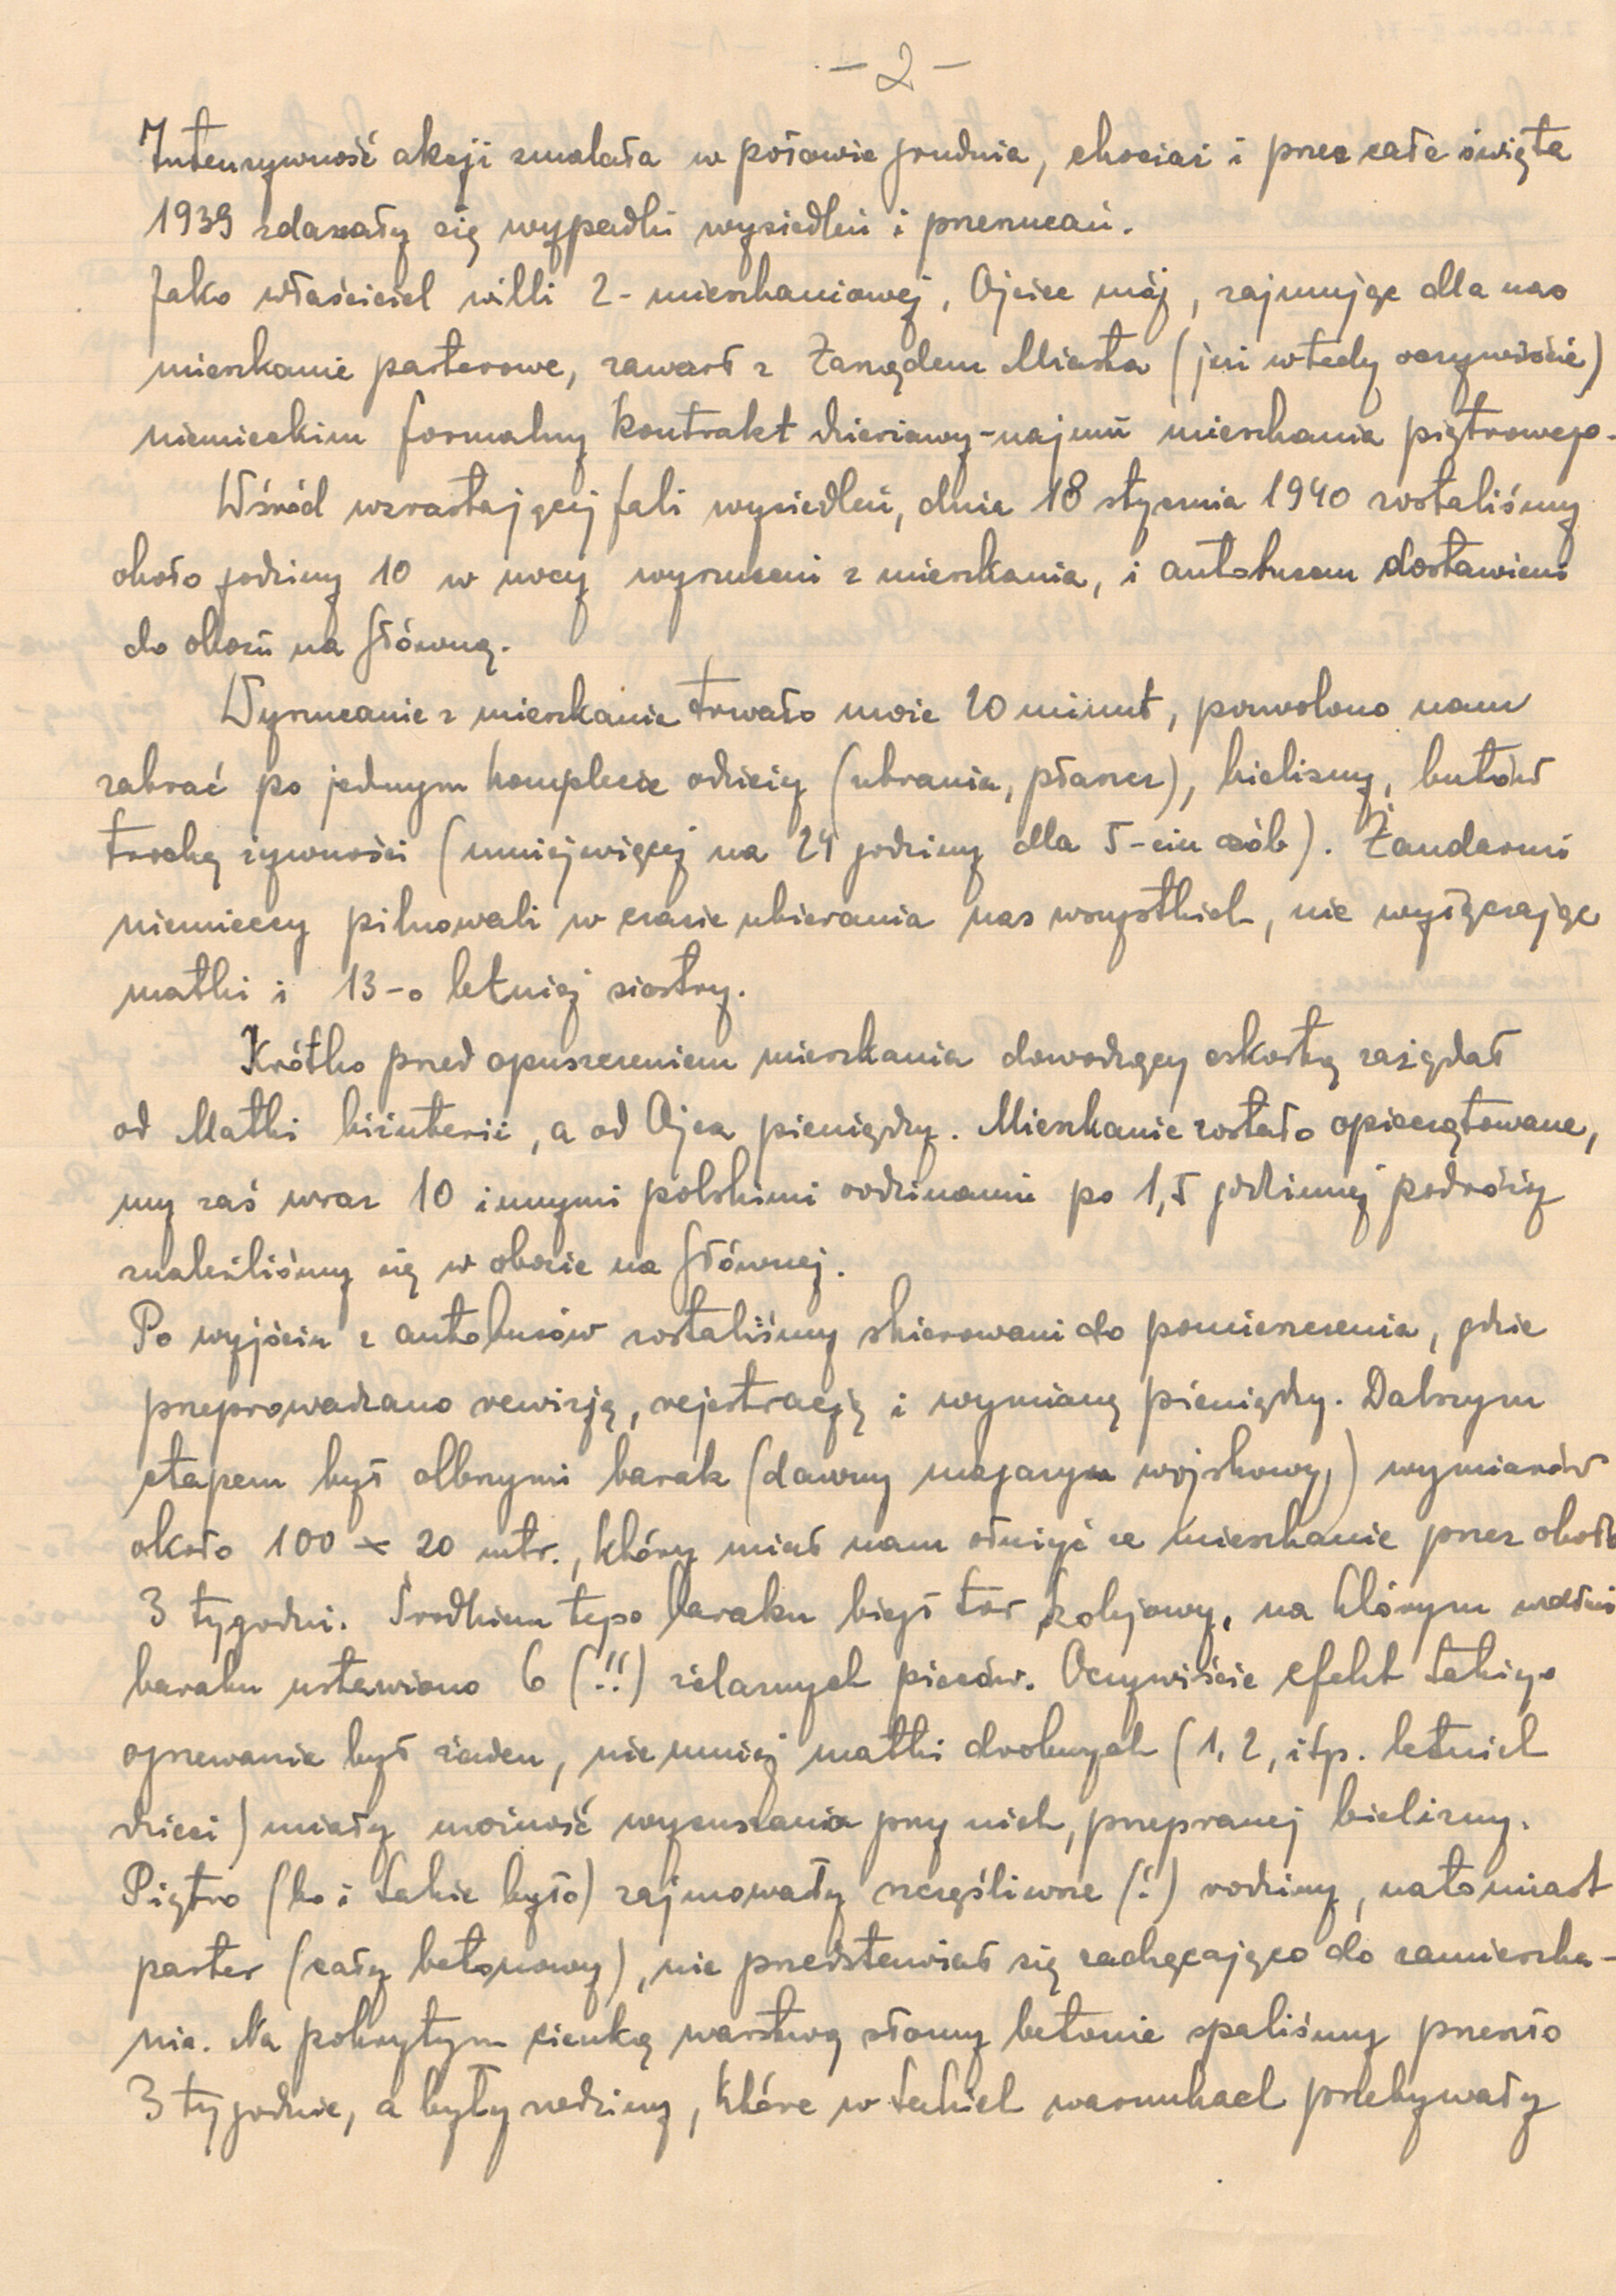 - 2 -
Intensywność akcji zmalała w połowie grudnia, chociaż i przez całe święta
1939 zdarzały się wypadki wysiedleń i przerzucań.
Jako właściciel willi 2-mieszkaniowej, Ojciec mój, zajmując dla nas
mieszkanie parterowe, zawarł z Zarządem Miasta (już wtedy oczywiście)
niemieckim formalny kontrakt dzierżawy-najmu mieszkania piętrowego.
Wśród wzrastającej fali wysiedleń, dnia 18 stycznia 1940 zostaliśmy
około godziny 10 w nocy wyrzuceni z mieszkania, i autobusem dostawieni
do obozu na Główną.
Wyrzucanie z mieszkania trwało może 20 minut, pozwolono nam
zabrać po jednym komplecie odzieży (ubrania, płaszcz), bielizny, butów
trochę żywności (mniejwięcej na 24 godziny dla 5-ciu osób). Żandarmi
niemieccy pilnowali w czasie ubierania nas wszystkich, nie wyłączając
matki i 13-o letniej siostry.
Krótko przed opuszczeniem mieszkania dowodzący eskortą zażądał
od Matki biżuterii, a od Ojca pieniędzy. Mieszkanie zostało opieczętowane,
my zaś wraz 10 innymi polskimi rodzinami po 1,5 godzinnej podróży
znaleźliśmy się w obozie na Głównej.
Po wyjściu z autobusów zostaliśmy skierowani do pomieszczenia, gdzie
przeprowadzano rewizję, rejestrację i wymianę pieniędzy. Dalszym
etapem był olbrzymi barak (dawny magazyn wojskowy,) wymiarów
około 100 x 20 mtr., który miał nam służyć za mieszkanie przez około
3 tygodni. Środkiem tego baraku biegł tor kolejowy, na którym wzdłuż
baraku ustawiono 6 (!!) żelaznych pieców. Oczywiście efekt takiego
ogrzewania był żaden, niemniej matki drobnych (1, 2, itp. letnich
dzieci) miały możność wysuszania przy nich, przepranej bielizny.
Piętro (bo i takie było) zajmowały szczęśliwsze (!) rodziny, natomiast
parter (cały betonowy), nie przedstawiał się zachęcająco do zamieszka-
nia. Na pokrytym cienką warstwą słomy betonie spaliśmy przeszło
3 tygodnie, a były rodziny, które w takich warunkach przebywały